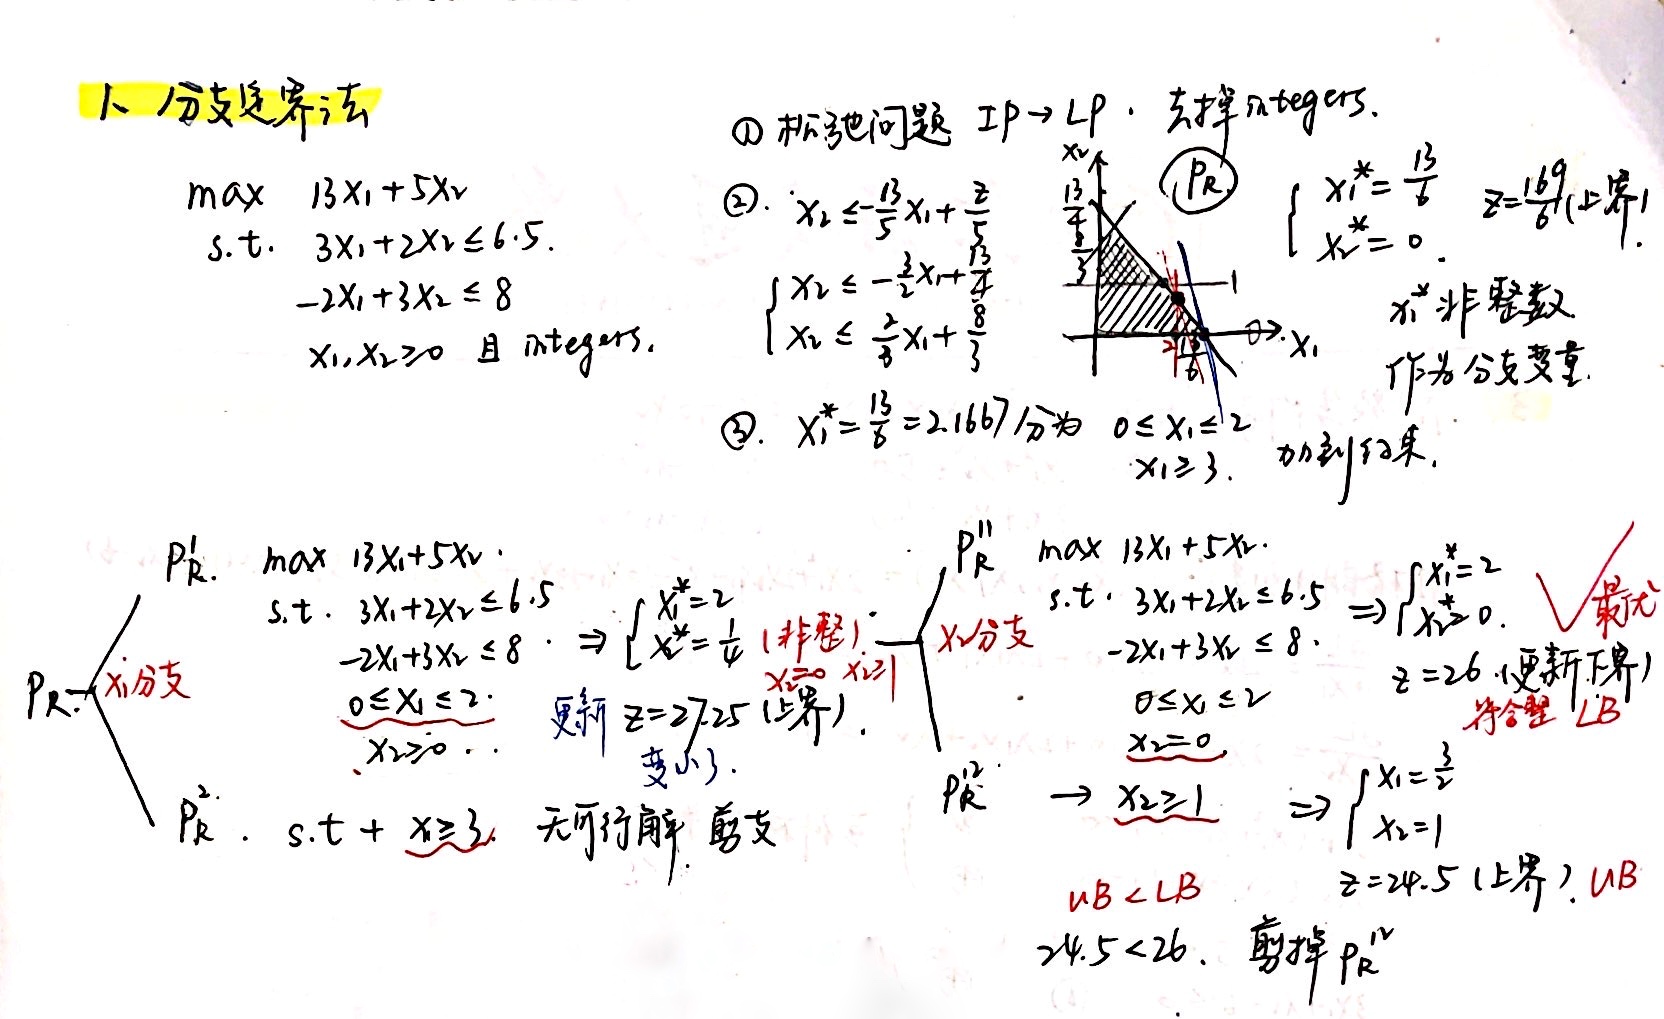 1、分支定界法
max 13x₁+5x₂
s.t. 3x₁+2x₂≤6.5.
-2x₁+3x₂≤8
x₁,x₂≥0 且 integers.
① 松弛问题 IP→LP. 去掉integers.
②. x₂≤-13/5x₁+z/5
{ x₂≤-3/2x₁+13/4
x₂≤2/3x₁+8/3
x₂
13/4
8/3
1
2
13/6
x₁
P_R
{ x₁*=13/6
x₂*=0.
z=169/6(上界).
x₁*非整数
作为分支变量.
③. x₁*=13/6=2.1667分为 0≤x₁≤2
x₁≥3. 加到约束.
P_R
x₁分支
P_R¹. max 13x₁+5x₂.
s.t. 3x₁+2x₂≤6.5
-2x₁+3x₂≤8.
0≤x₁≤2.
x₂≥0..
⇒ { x₁*=2
x₂*=1/4 (非整).
x₂=0 x₂≥1
更新 z=27.25 (上界).
变小了.
P_R². s.t + x₁≥3. 无可行解. 剪支
x₂分支
P_R¹¹ max 13x₁+5x₂.
s.t. 3x₁+2x₂≤6.5
-2x₁+3x₂≤8.
0≤x₁≤2
x₂=0.
⇒ { x₁*=2
x₂*=0.
✓最优
z=26.(更新下界)
符合整 LB
P_R¹² → x₂≥1 ⇒ { x₁=3/2
x₂=1
z=24.5 (上界). UB
UB<LB
24.5<26. 剪掉 P_R¹²